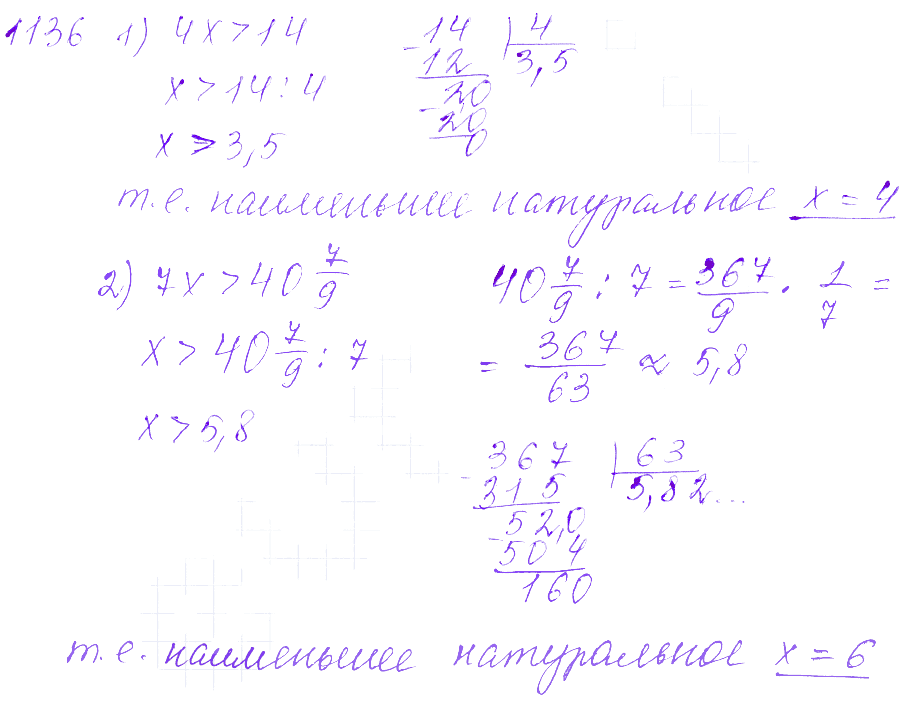 1136 1) 4x > 14
x > 14 : 4
x > 3,5
- 14 | 4
12 3,5
- 20
20
0
т.е. наименьшее натуральное x = 4
2) 7x > 40 7/9
x > 40 7/9 : 7
x > 5,8
40 7/9 : 7 = 367/9 · 1/7 =
= 367/63 ≈ 5,8
- 367 | 63
315 5,82...
- 52,0
50 4
160
т.е. наименьшее натуральное x = 6